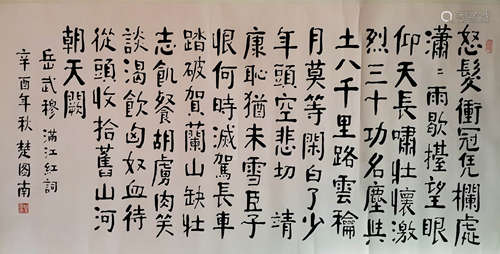 怒髮衝冠凭欄處
瀟〻雨歇擡望眼
仰天長嘯壯懷激
烈三十功名塵與
土八千里路雲稐
月莫等閑白了少
年頭空悲切 靖
康恥猶未雪臣子
恨何時滅駕長車
踏破賀蘭山缺壯
志飢餐胡虜肉笑
談渴飲匈奴血待
從頭收拾舊山河
朝天闕
岳武穆 滿江紅詞
辛酉年秋 楚圖南